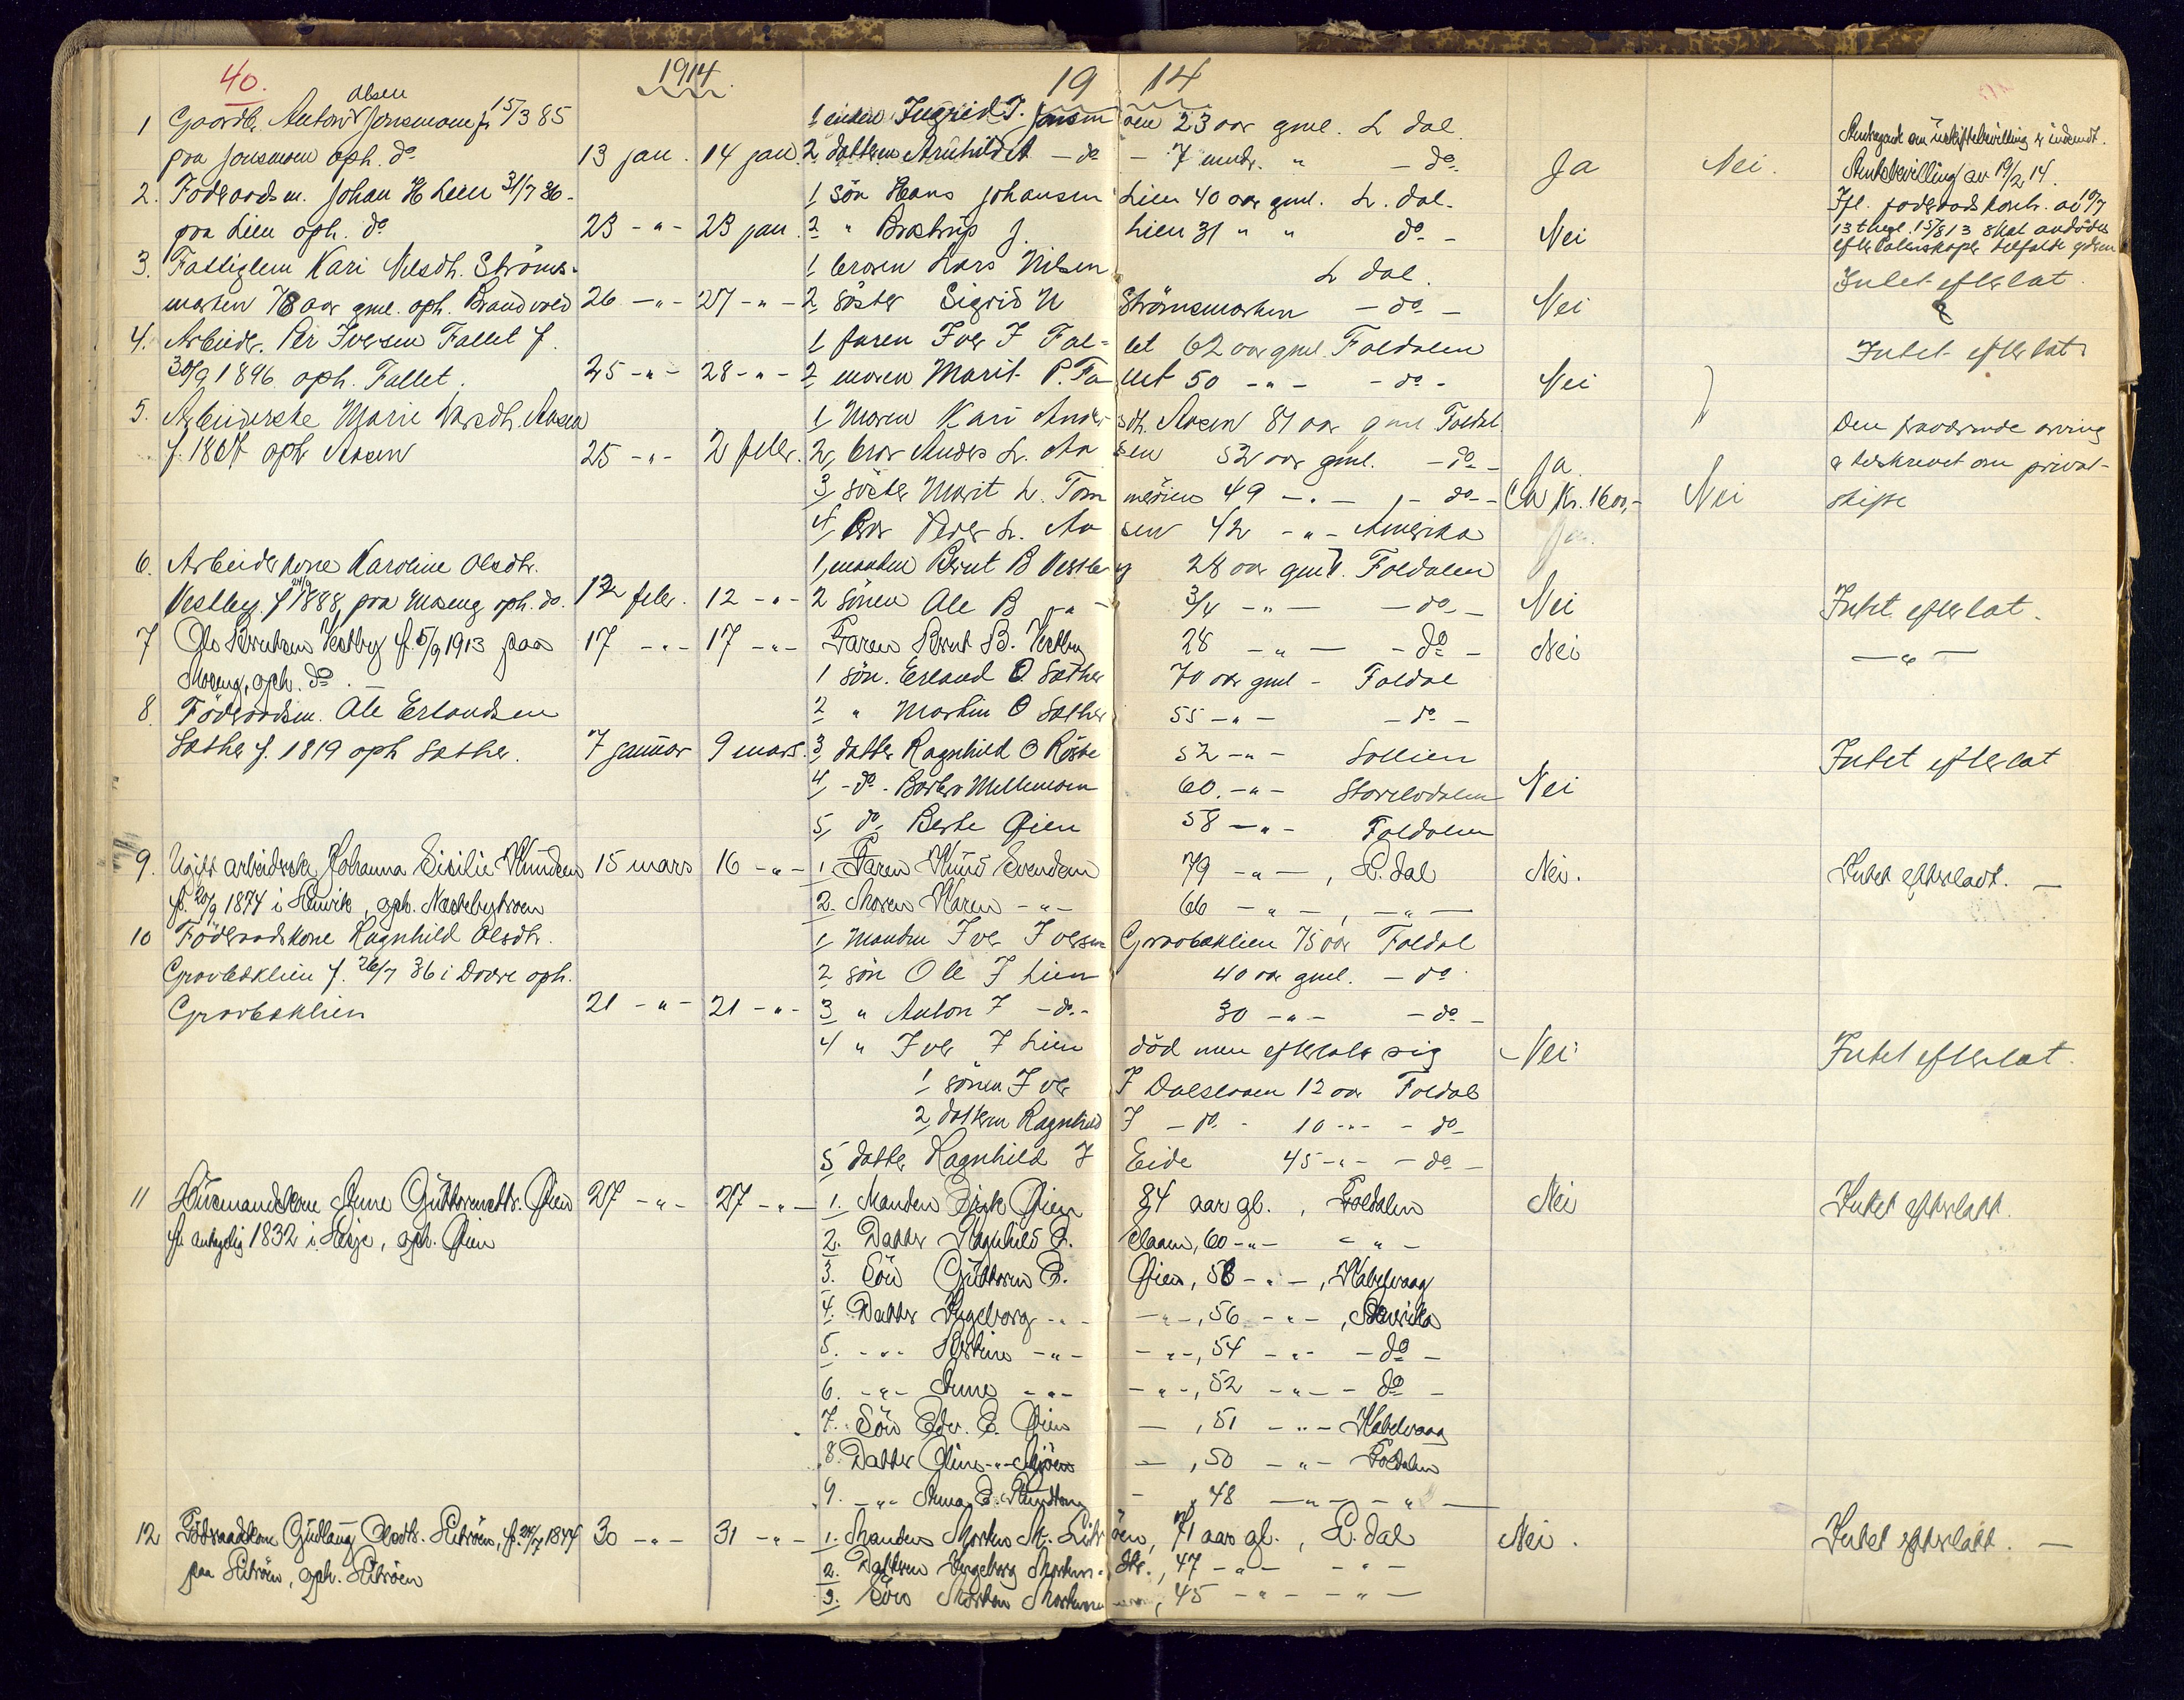 40. 1914. 19 14
Olsen
1 Gaardb. Anton Jonsmoen f. 15/3 85 1 enken Ingrid T. Jonsmoen 23 aar gml. L dal.
paa Jonsmoen oph. do 13 jan. 14 jan. 2 datteren Arnhildt - do - 7 mndr. " - do - Ja Nei. Amtsbevilling av 19/2 14.
2. Föderaadsm. Johan H Lien 31/7 36 - 1 sön Hans Johansen Lien 40 aar gml. L. dal.
paa Lien oph. do 23 - " - 23 jan. 2 " Brostrup J. Lien 31 " " do - Nei
3. Fattiglem Kari Nilsdh. Ströms- 1 broren Lars Nilsen L dal. Intet efterlat.
moen 78 aar gml. oph. Brandvold 26 - " - 27 - " - 2 söster Sigrid N Strömsmoen - do - Nei
4. Arbeider. Per Iversen Fallet f. 1 faren Iver I Fal- let 62 aar gml. Foldalen Intet efterlat
30/9 1896 oph. Fallet. 25 - " - 28 - " - 2 moren Marit P. Fa llet 50 - " - - do - Nei
5. Arbeiderske Marie Larsdh. Aasen 1 Moren Kari Ander sdh. Aasen 81 aar gml Foldal. Den fraværende arving
f. 1867 oph Aasen 25 - " - 2 febr. 2, bror Anders L. Aa sen 52 aar gml. - do - Ja. er beskrevet om privat-
3, söster Marit L. Tom meraas 49 - " - - do - Ca Kr. 1600,- Nei skifte
4, Bror Peder L. Aa sen 42 - " - Amerika
6. Arbeiderkone Karoline Olsdtr. 1, manden Bernt B Vestby 28 aar gml. Foldalen
Vestby. f 24/9 1888 paa Moseng oph. do. 12 febr. 12 - " - 2 sönen Ole B - " - 3/4 - " - - do - Nei Intet efterlat.
7 Ole Berntsen Vestby f. 5/9 1913 paa 17 - " - 17 - " - Faren Bernt B. Vestby 28 - " - - do - Nei - " -
Moseng, oph. do. 1 sön. Erland O. Sæther 70 aar gml - Foldal
8. Föderaadsm. Ole Erlandsen 2 " Martin O Sæther 55 - " - - do -
Sæther f. 1819 oph Sæther. 7 januar 9 mars. 3 datter Ragnhild O Röste 52 - " - Sollien Intet efterlat
4, - do - Barbro Mellemoen 60. - " - Storelvdalen Nei
5, do, Berte Øien 58 - " - Foldalen
9. Ugift arbeiderske Johanna Sisilie Knudsen 15 mars 16 - " - 1. Faren Knud Svendsen 79 - " -, L. dal Nei. Intet efterladt. -
f. 20/9 1874 i , oph. Nordebytroen 2. Moren Karen - " - 66 - " -, - " -
10 Föderaadskone Ragnhild Olsdtr. 1 Manden Iver Iversen Graabæklien 75 aar Foldal
Graabæklien f. 26/7 36 i Dovre oph. 2 sön Ole I Lien 40 aar gml. - do.
Graabæklien 21 - " - 21 - " - 3 " Anton I - do - 30 - " - - do -
4 " Iver I Lien död men efterlatt sig Nei Intet efterlat.
1 sönen Iver I Dalsloen 12 aar Foldal
2, datteren Ragnhild I - do. - 10 - " - - do -
5 datter Ragnhild I Eide 45 - " - - do -
11 Husmandskone Anne Guttormsdtr. Øien 27 - " - 27 - " - 1. Manden Eirik Øien 84 aar gl., Foldalen Nei Intet efterlatt.
f. antagelig 1832 i , oph. Øien 2. Datter Ragnhild E. , 60 - " - - " -
3. Sön Guttorm E. Øien, 58 - " -, Kabelvaag
4. Datter Ingeborg - " - - " -, 56 - " -, Amerika
5. - " - - " - - " -, 54 - " - - do -
6. - " - Anne - " - - " -, 52 - " - - do -
7. Sön Edv. E. Øien -, 51 - " - Kabelvaag
8. Datter Oline - " - -, 50 - " - Foldalen
9. - " - Anna E. - , 48 - " - - " -
12 Föderaadskone Gudlaug Olsdtr. , f. 1844 30 - " - 31 - " - 1. Manden Morten M. öen, 71 aar gl., L. dal Nei. Intet efterlatt. -
oph. 2. Datteren Ingeborg Morten- dtr., 47 - " - - " -
3. Sön Morten Mortensen, 45 - " - - " -